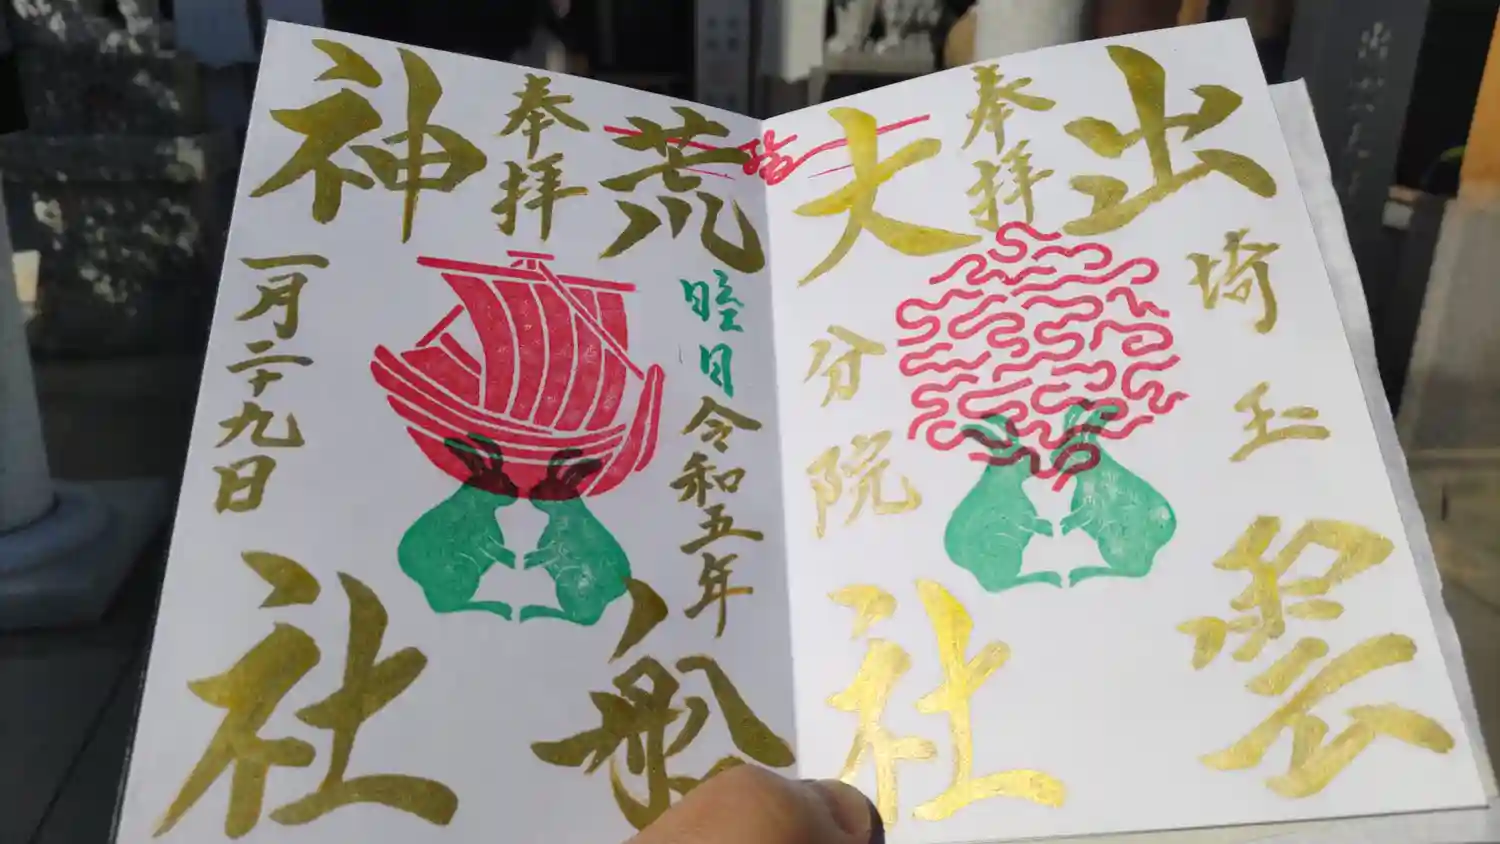 出雲
奉拝
埼玉
大社
分院
荒船
奉拝
睦月 令和五年
神社
一月二十九日